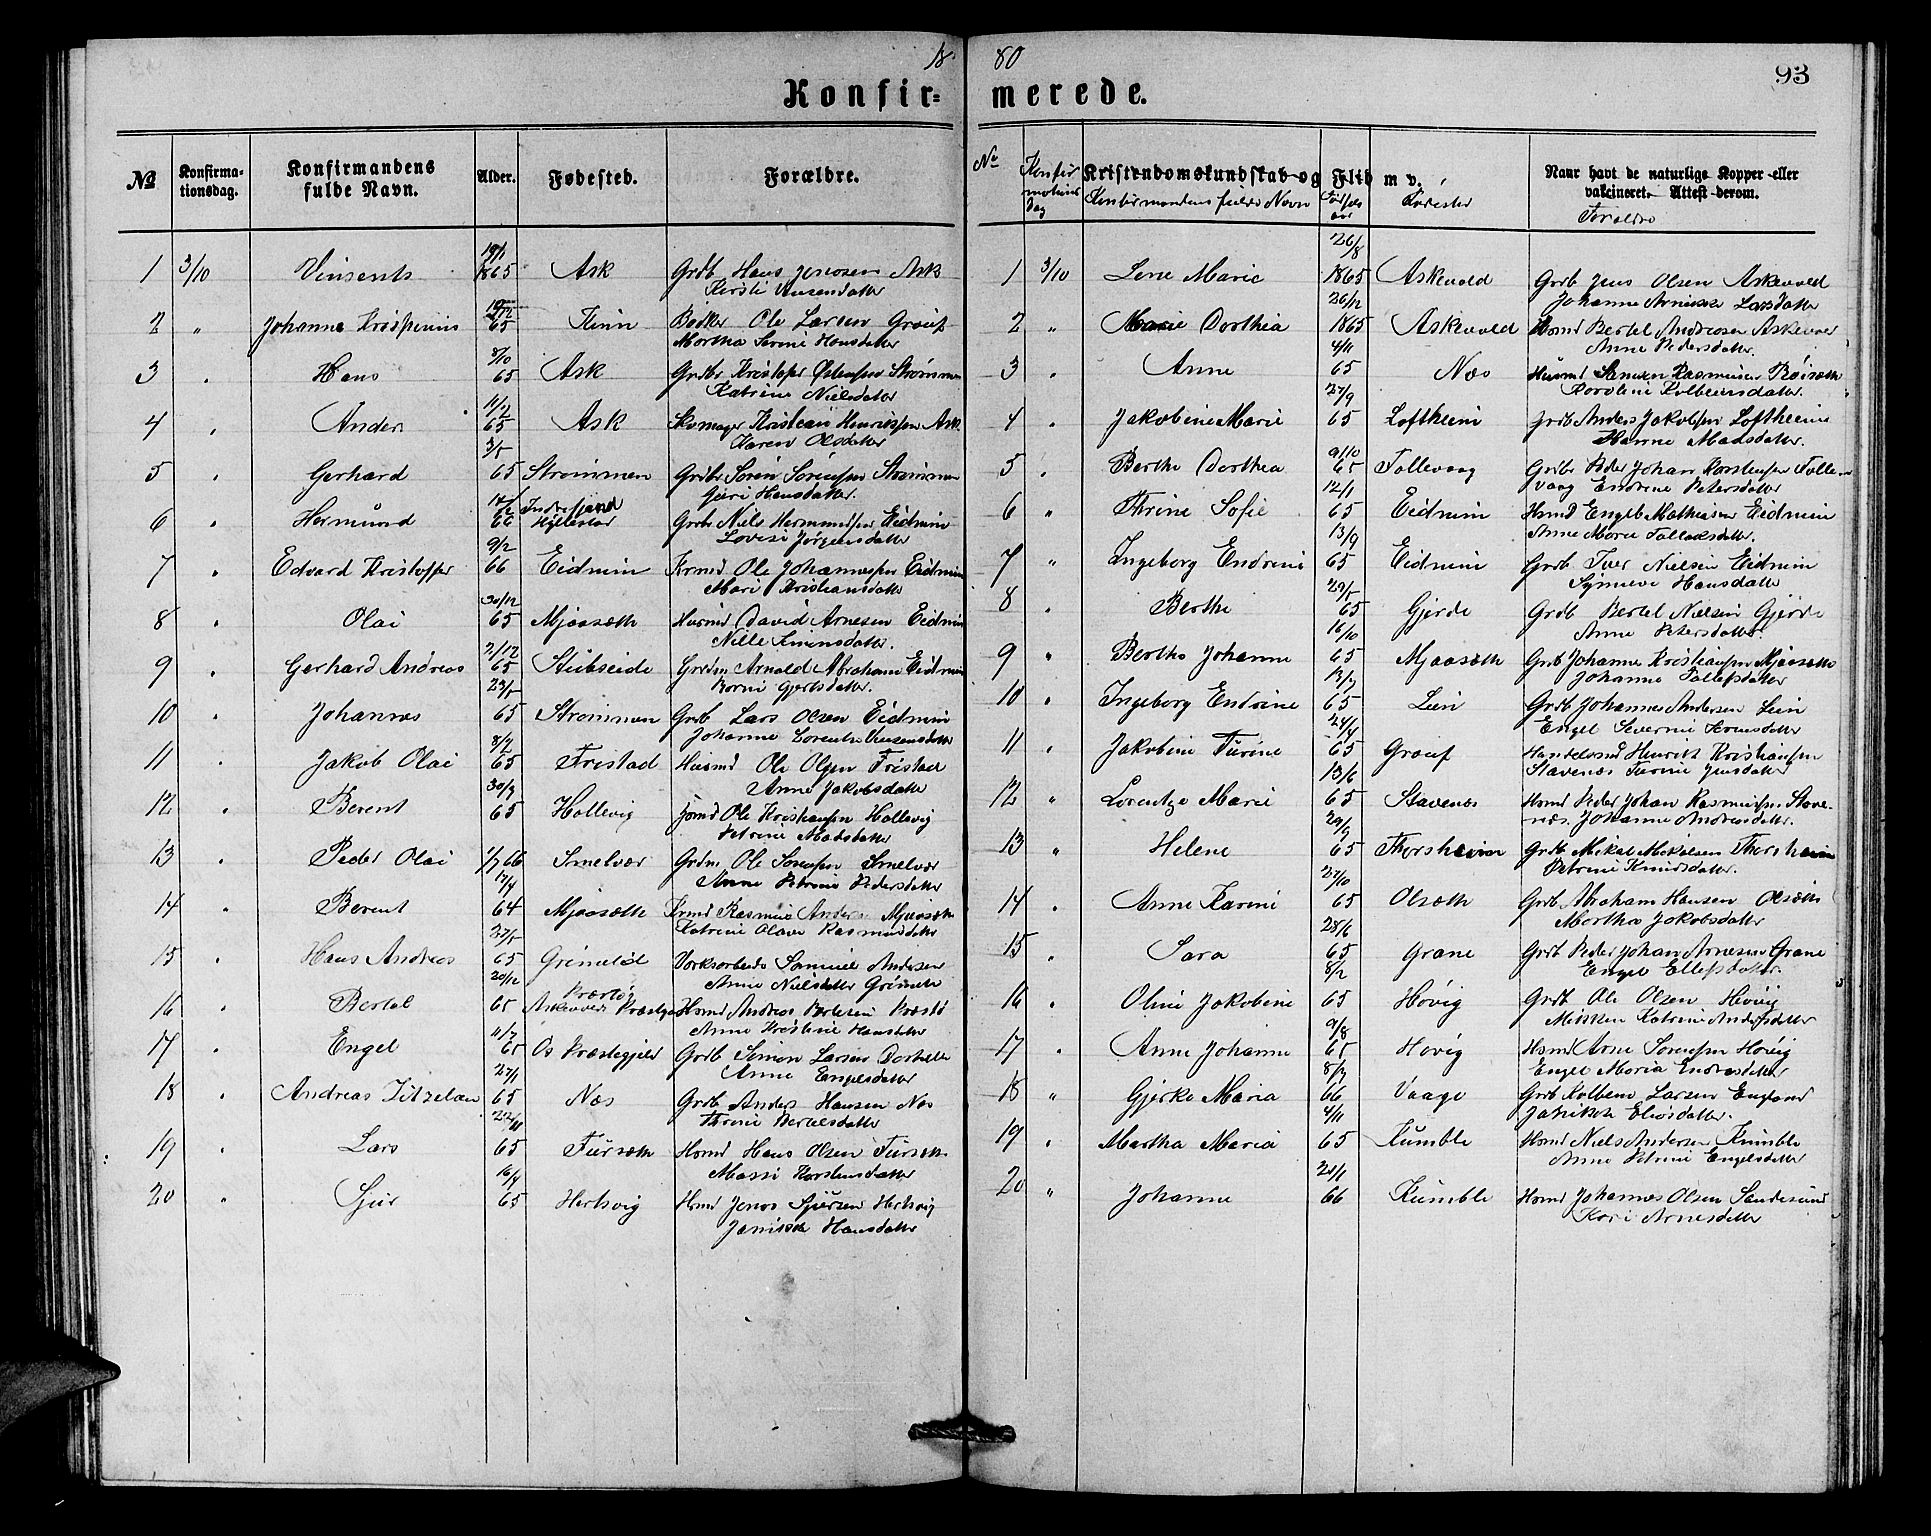 18 80
93
Konfir= merede.
№ Konfirma-tionsdag. Konfirmandens fulde Navn. Alder. Fødested. Forældre.
1 3/10 Vinsents 19/1 1865 Ask Grdb Hans Jenssen Ask
Kirsti Vinsensdatter
2 " Johannes Krispinius 65 Kinn Bødker Ole Larsen Grøuf
Martha Serine Hansdatter
3 " Hans 8/10 65 Ask Grdbr Kristofer Østensen Strømmen
Katrine Nielsdatter
4 " Anders 11/2 65 Ask Skomager Kristian Henriksen Ask
Karen Olsdatter
5 " Gerhard 3/5 65 Strømmen Grdbr Søren Sørensen Strømmen
Guri Hansdatter.
6 " Hermund 66 Indrefjord Hyllestad Grdbr Niels Hermundsen Eidmin
Lovise Jørgensdatter
7 " Edvard Kristoffer 9/2 66 Eidmin Krmd Ole Johannesen Eidmin
Mari Kristiansdatter
8 " Olai 30/12 65 Mjaasæth Husmd David Arnesen Eidmin
Nille Simensdatter.
9 " Gerhard Andreas 2/12 65 Stubseide Grdm Arnold Abrahams Eidmin
Borni Gjertsdatter.
10 " Johannes 23/5 65 Strømmen Grdb Lars Olsen Eidmin
Johanne Lorentze Vinsensdatter
11 " Jakob Olai 8/2 65 Fristad Husmd Ole Olsen Fristad
Anne Jakobsdatter
12 " Berent 30/9 65 Hollevig Ole Kristiansen Hollevig
Petrine Madsdatter
13 " Peder Olai 1/7 66 Smelvær Grdm Ole Sørensen Smelvær
Anne Petrine Pedersdatter
14 " Berent 17/4 64 Mjaasæth Krmd Rasmus Andersen Mjaasæth
Katrine Olave Rasmusdatter
15 " Hans Andreas 27/5 65 Grimelid Værksarbeider Samuel Andersen
Anne Nielsdatter Grimelid
16 " Bertel 20/12 65 Præstø Askevold Præstegj Husmd Andreas Bertelsen Præstø
Anne Kristine Hansdatter
17 " Engel 11/7 65 Os Præstegjeld Grdb Simon Larsen Dorhelle
Anne Engelsdatter
18 " Andreas Zitzelan 27/1 65 Næs Grdb Anders Hansen Næs
Thrine Bertelsdatter
19 " Lars 22/11 65 Furesæth Husmd Hans Olsen Furesæth
Massi Karstensdatter
20 " Sjur 16/4 65 Hertsvig Husmd Jonas Sjursen Hertsvig
Janikke Hansdatter
No Konfirmations Dag Kristendomskundskab og Flid m v. Naar havt de naturlige Kopper eller vakcineret. Attest derom.
Konfirmandens fulde Navn Fødsels aar Fødested Forældre
1 3/10 Lene Marie 26/8 1865 Askevold Grdb Jens Olsen Askevold
Johanne Arnikke Larsdatter
2 " Marie Dorthea 26/12 1865 Askevold Husmd Bertel Andreasen Askevold
Anne Pedersdatter.
3 " Anne 4/11 65 Næs Husmd Simeon Rasmusen Røisæth
Karoline Kolbeinsdatter.
4 " Jakobine Marie 27/9 65 Loftheim Grdb Anders Jakobsen Loftheim
Hanne Madsdatter.
5 " Berthe Dorthea 9/10 65 Tollevaag Grdbr Peder Johan Karstensen Tollevaag Endrine Petersdatter
6 " Thrine Sofie 12/1 65 Eidmin Husmd Engelb Mathiasen Eidmin
Anne Marie Tollaksdatter.
7 " Ingeborg Endrine 13/9 65 Eidmin Grdb Iver Nielsen Eidmin
Synneve Hansdatter
8 " Berthe 29/5 65 Gjerde Grdb Bertel Nielsen Gjerde
Anne Petersdatter.
9 " Berthe Johanne 16/10 65 Mjaasæth Grdb Johannes Kristiansen Mjaasæth
Johanne Tollefsdatter
10 " Ingeborg Endrine 13/7 65 Lien Grdb Johannes Andersen Lien
Engel Severine Arnesdatter
11 " Jakobine Turine 24/4 65 Grøuf Handelsmd Henrik Kristiansen
Stavenæs Turine Jensdatter
12 " Lorentze Marie 13/6 65 Stavenæs Husmd Peder Johan Rasmusen Stave-
næs. Johanne Andreasdatter.
13 " Helene 29/9 65 Thorsheim Grdb Mikal Mikalsen Thorsheim
Petrine Knudsdatter.
14 " Anne Karine 27/10 65 Olsæth Grdb Abraham Hansen Olsæth
Martha Jakobsdatter
15 " Sara 28/6 65 Grane Grdb Peder Johan Arnesen Grane
Engel Ellefsdatter.
16 " Oline Jakobine 8/2 65 Høvig Grdb Ole Olsen Høvig
Mikken Katrine Andersdatter
17 " Anne Johanne 9/8 65 Høvig Husmd Arne Sørensen Høvig
Engel Maria Endresdatter
18 " Gjerke Maria 8/7 66 Vaage Grdb Kolbein Larsen Engsand
Janikke Eliasdatter.
19 " Martha Maria 4/11 65 Kumble Husmd Niels Andersen Kumble
Anne Petrine Engelsdatter
20 " Johanne 20/1 66 Kumble Husmd Johannes Olsen Sandesund
Kari Arnesdatter